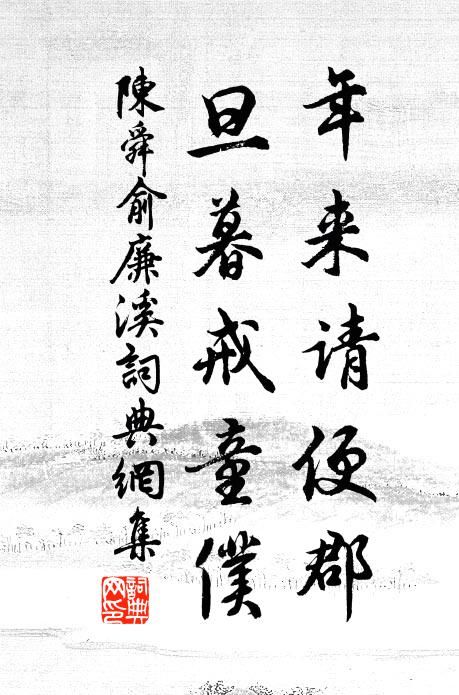 年来请便郡
旦暮戒童僕
陳舜俞廉溪詞典網集
詞典网印